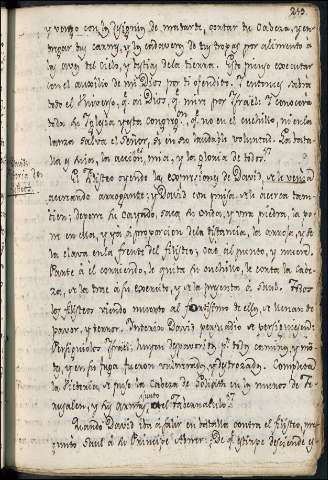 249.
y vengo con la de matarte, cortar tu Cabeza, y en
tregar tu carne, y los cadaveres de tus tropas por alimento a
las aves del Cielo, y bestias de la tierra. Esto pienso executar
con el auxilio de mi Dios por ti ofendido. Y entonces sabrá
todo el Universo, q.e ai Dios, q.e mira por Israel: Y conocerá
toda la Iglesia y esta congreg.on q.e no en el cuchillo, ni en la
lanza salva el Señor, si en su voluntad. La bata
lla es suya, la accion, mia, y la gloria de todos.
El Filisteo oyendo las expresiones de David, se le
acercando arrogante; y David con prisa se le acerca tam
bien; depone el Cayado, saca la onda, y una piedra, la po
ne en ella, y ya a proporcion de la distancia, la arroja, y se
la clava en la frente del Filisteo; cae al punto, y muere.
Parte a el corriendo, le quita su cuchillo, le corta la Cabe
za, se la trae a su exercito, y se la presenta a Saul.
los Filisteos viendo muerto al fortissimo de ellos, se llenan de
pavor, y terror. David persuadio se persiguiesen
Persiguelos Israel: huyen despavoridos p.r todo camino, y
to, y en su fuga fueron vulnerados, y destrozados. Completada
la Victoria se puso la Cabeza de Goliath en los muros de Je
rusalen, y sus armas junto al Tabernaculo.
Quando David iba a salir en batalla contra el Filisteo, pre
guntò Saul a su Principe Abner: De q.e estirpe desciende es